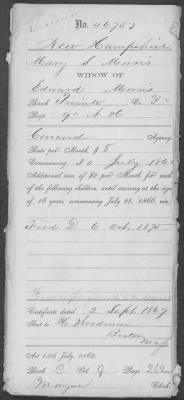 No. 46753
New Hampshire
Mary S Morris
WIDOW OF
Edward Morris
Rank Private Co. F
Regt. 9th N. H
Concord Agency
Rate per Month, $8
Commencing 30 July 186
Additional sum of $2 per Month for each
of the following children, until arriving at the age
of 16 years, commencing July 25, 1866, viz:
Fred 6 Oct. 187
Certificate dated 2 Sept. 1867
Sent to H.
Boston
Mass
Act 14th July 1862.
Book C Vol. 9 Page
Clerk.